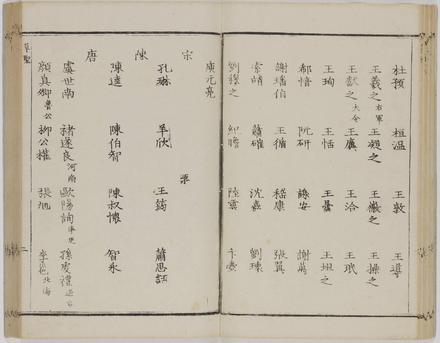 杜預 桓温 王敦 王導
王羲之右軍 王凝之 王徽之 王操之
王獻之大令 王廙 王洽 王珉
王珣 王恬 王曇 王坦之
郗愔 阮研 謝安 謝萬
謝璠伯 王循 嵇康 張翼
索靖 蕭確 沈嘉 劉瓌
劉穆之 紀瞻 陸雲 卞壼
庾元亮
宋
孔琳 羊欣 王筠 蕭思話
陳
陳逵 陳伯智 陳叔懷 智永
唐
虞世南 褚遂良河南 歐陽詢率更 孫虔禮過庭
顏真卿魯公 柳公權 張旭 李邕北海
二